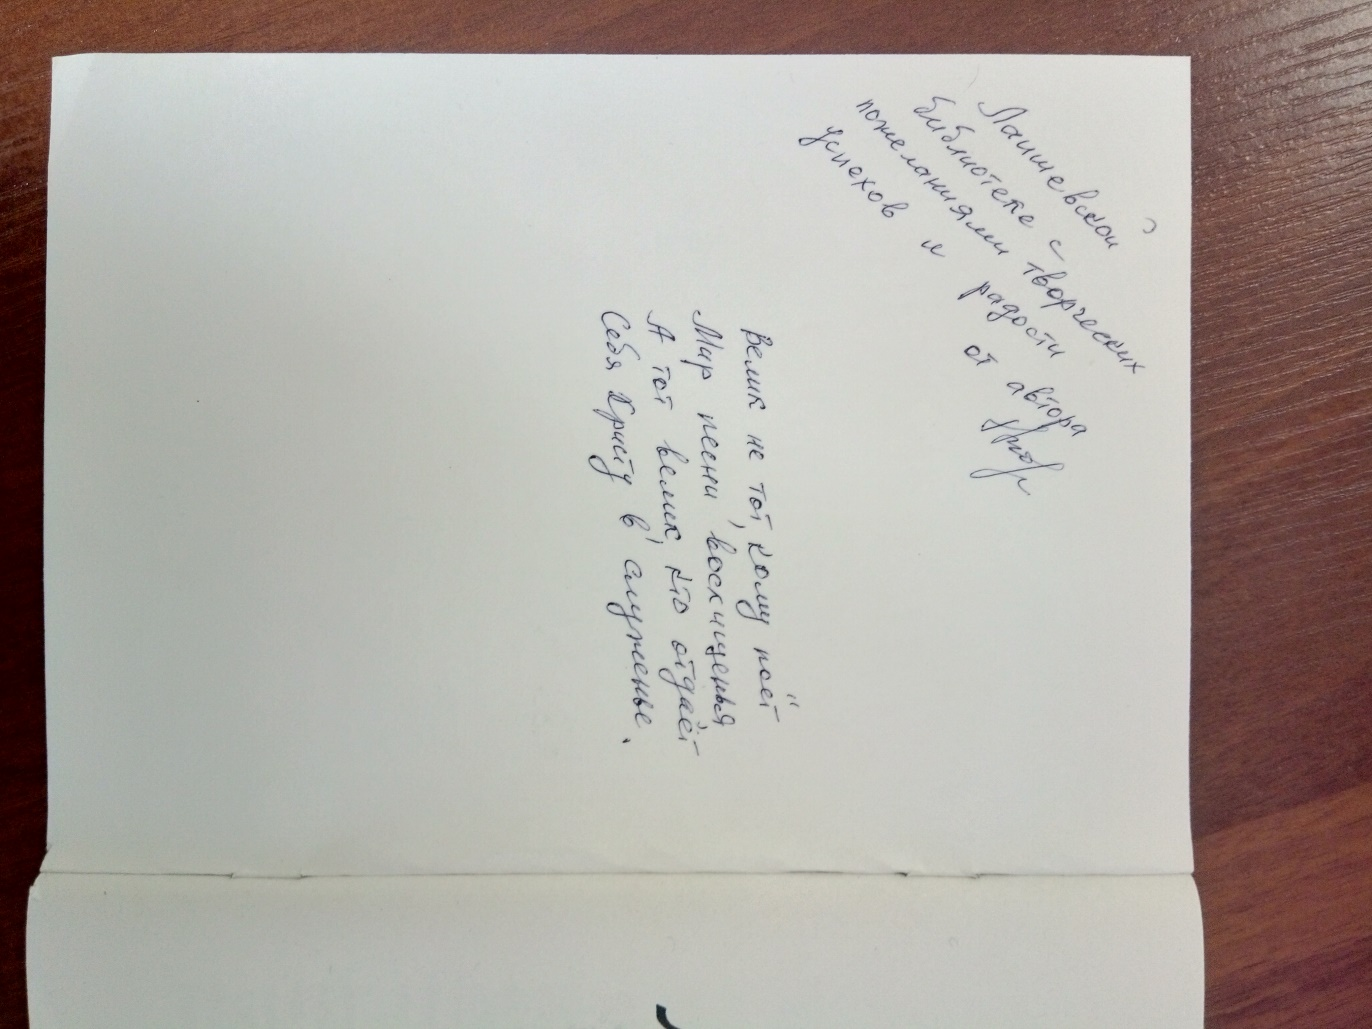 Лаишевской
библиотеке с
пожеланиями творческих
успехов и радости
от автора
Велик не тот, кому поёт
Мир песни восхищенья,
А тот велик, кто отдаёт
Себя Христу в служенье.